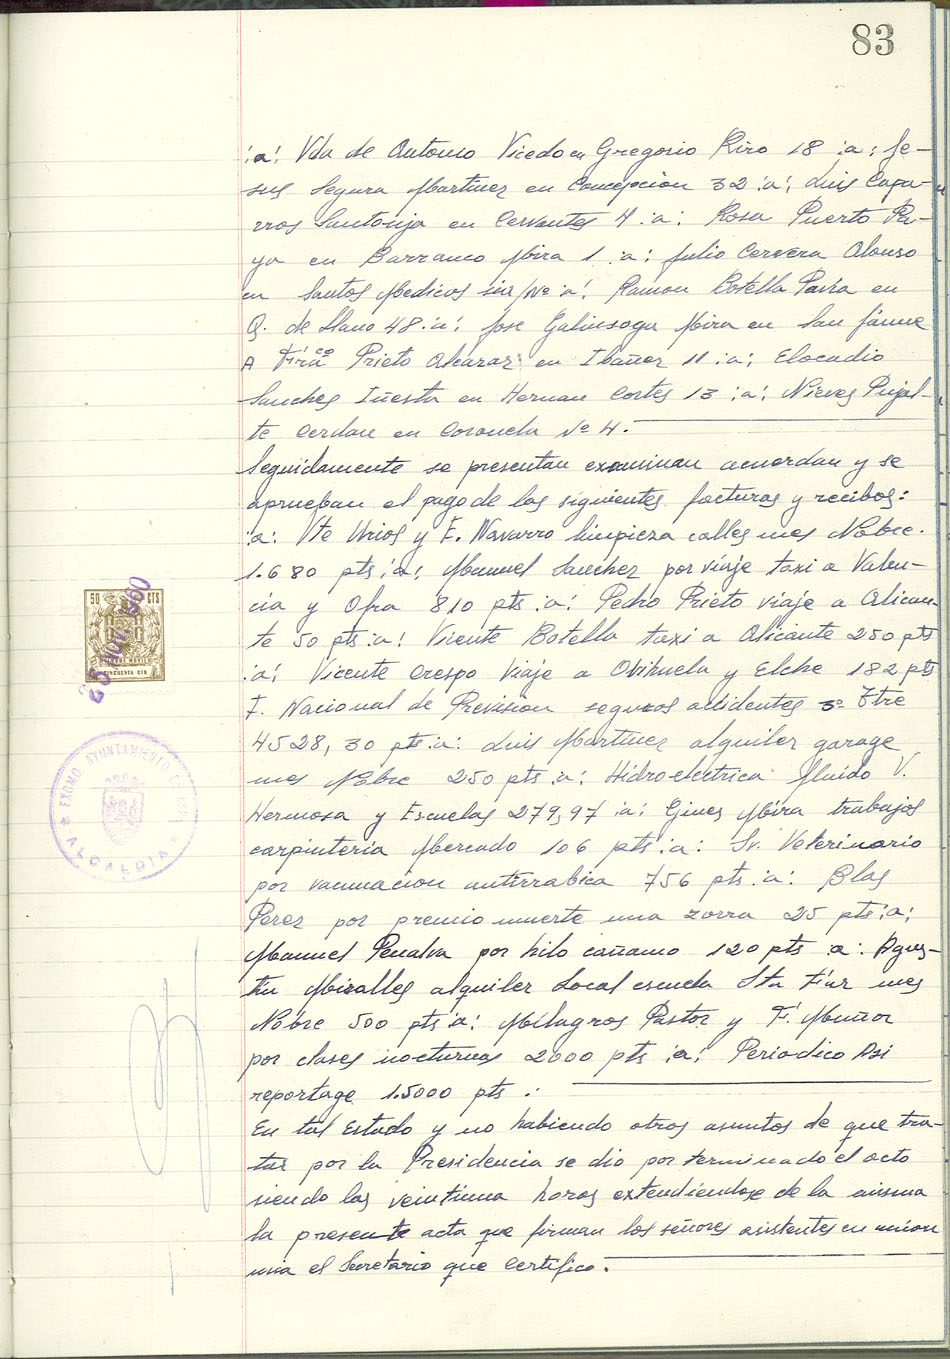 83
:a: Vda de Antonio Vicedo en Gregorio Rizo 18 :a: Je-
sus Segura Martinez en Concepcion 32 :a: Luis Capa-
rros Santonja en Cervantes 4 :a: Rosa Puerto Pa-
ya en Barranco Mira 1 :a: Julio Cervera Alonso
en Santos Medicos sin/nº :a: Ramon Botella Pavia en
Q. de Llano 48 :a: Jose Galinsoga Mira en San Jaime
A Frco Prieto Alcaraz en Ibañez 11 :a: Elocadio
Sanchez Iñesta en Hernan Cortes 13 :a: Nieves Pujal-
te Cerdan en Coronela Nº 4.
Seguidamente se presentan examinan acuerdan y se
aprueban el pago de las siguientes facturas y recibos:
:a: Vte Urios y F. Navarro limpieza calles mes Nobre.
1.680 pts :a: Manuel Sanchez por viaje taxi a Valen-
cia y Ofra 810 pts :a: Pedro Prieto viaje a Alican-
te 50 pts :a: Vicente Botella taxi a Alicante 250 pts
:a: Vicente Crespo Viaje a Orihuela y Elche 182 pts
F. Nacional de Prevision seguros accidentes 3º Ttre
4528,30 pts :a: Luis Martinez alquiler garage
mes Nobre 250 pts :a: Hidroelectrica fluido V.
Hermosa y Escuelas 279,97 :a: Gines Mira trabajos
carpinteria Mercado 106 pts :a: Sr. Veterinario
por vacunacion antirrabica 756 pts :a: Blas
Perez por premio muerte una zorra 25 pts :a:
Manuel Penalva por hilo cañamo 120 pts :a: Agus-
tin Miralles alquiler Local escuela Sta mes
Nobre 500 pts :a: Milagros Pastor y F. Muñoz
por clases nocturnas 2000 pts :a: Periodico Asi
reportage 1.5000 pts :
En tal Estado y no habiendo otros asuntos de que tra-
tar por la Presidencia se dio por terminado el acto
siendo las veintiuna horas extendiendose de la misma
la presente acta que firman los señores asistentes en union
mia el Secretario que Certifico.
50 CTS
NOV. 1960
EXCMO. AYUNTAMIENTO
ALCALDIA